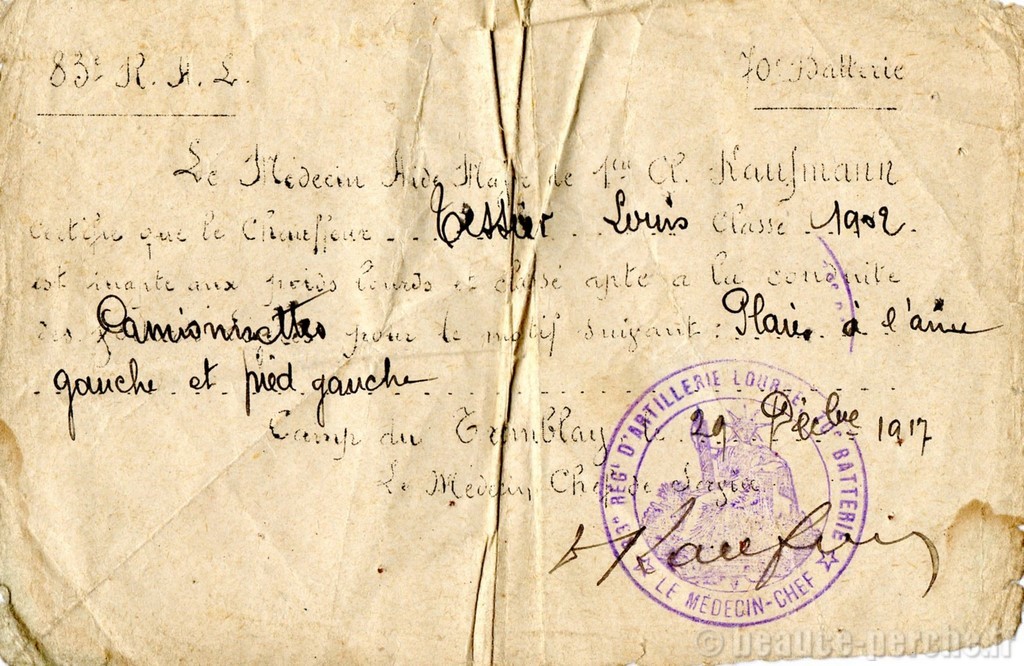 83e R. A. L.
70e Batterie
Le Médecin Aide Major de 1ère Cl. Kaufmann
certifie que le Chauffeur Tessier Louis Classe 1902.
est inapte aux poids lourds et classé apte à la conduite
des Camionnettes pour le motif suivant : Plaies à l'aine
gauche et pied gauche
Camp du Tremblay le 29 Décbre 1917
Le Médecin Chef de Service
83e REGt D'ARTILLERIE LOURDE 70e BATTERIE
LE MÉDECIN-CHEF
Kaufmann
© beaute-perche.fr